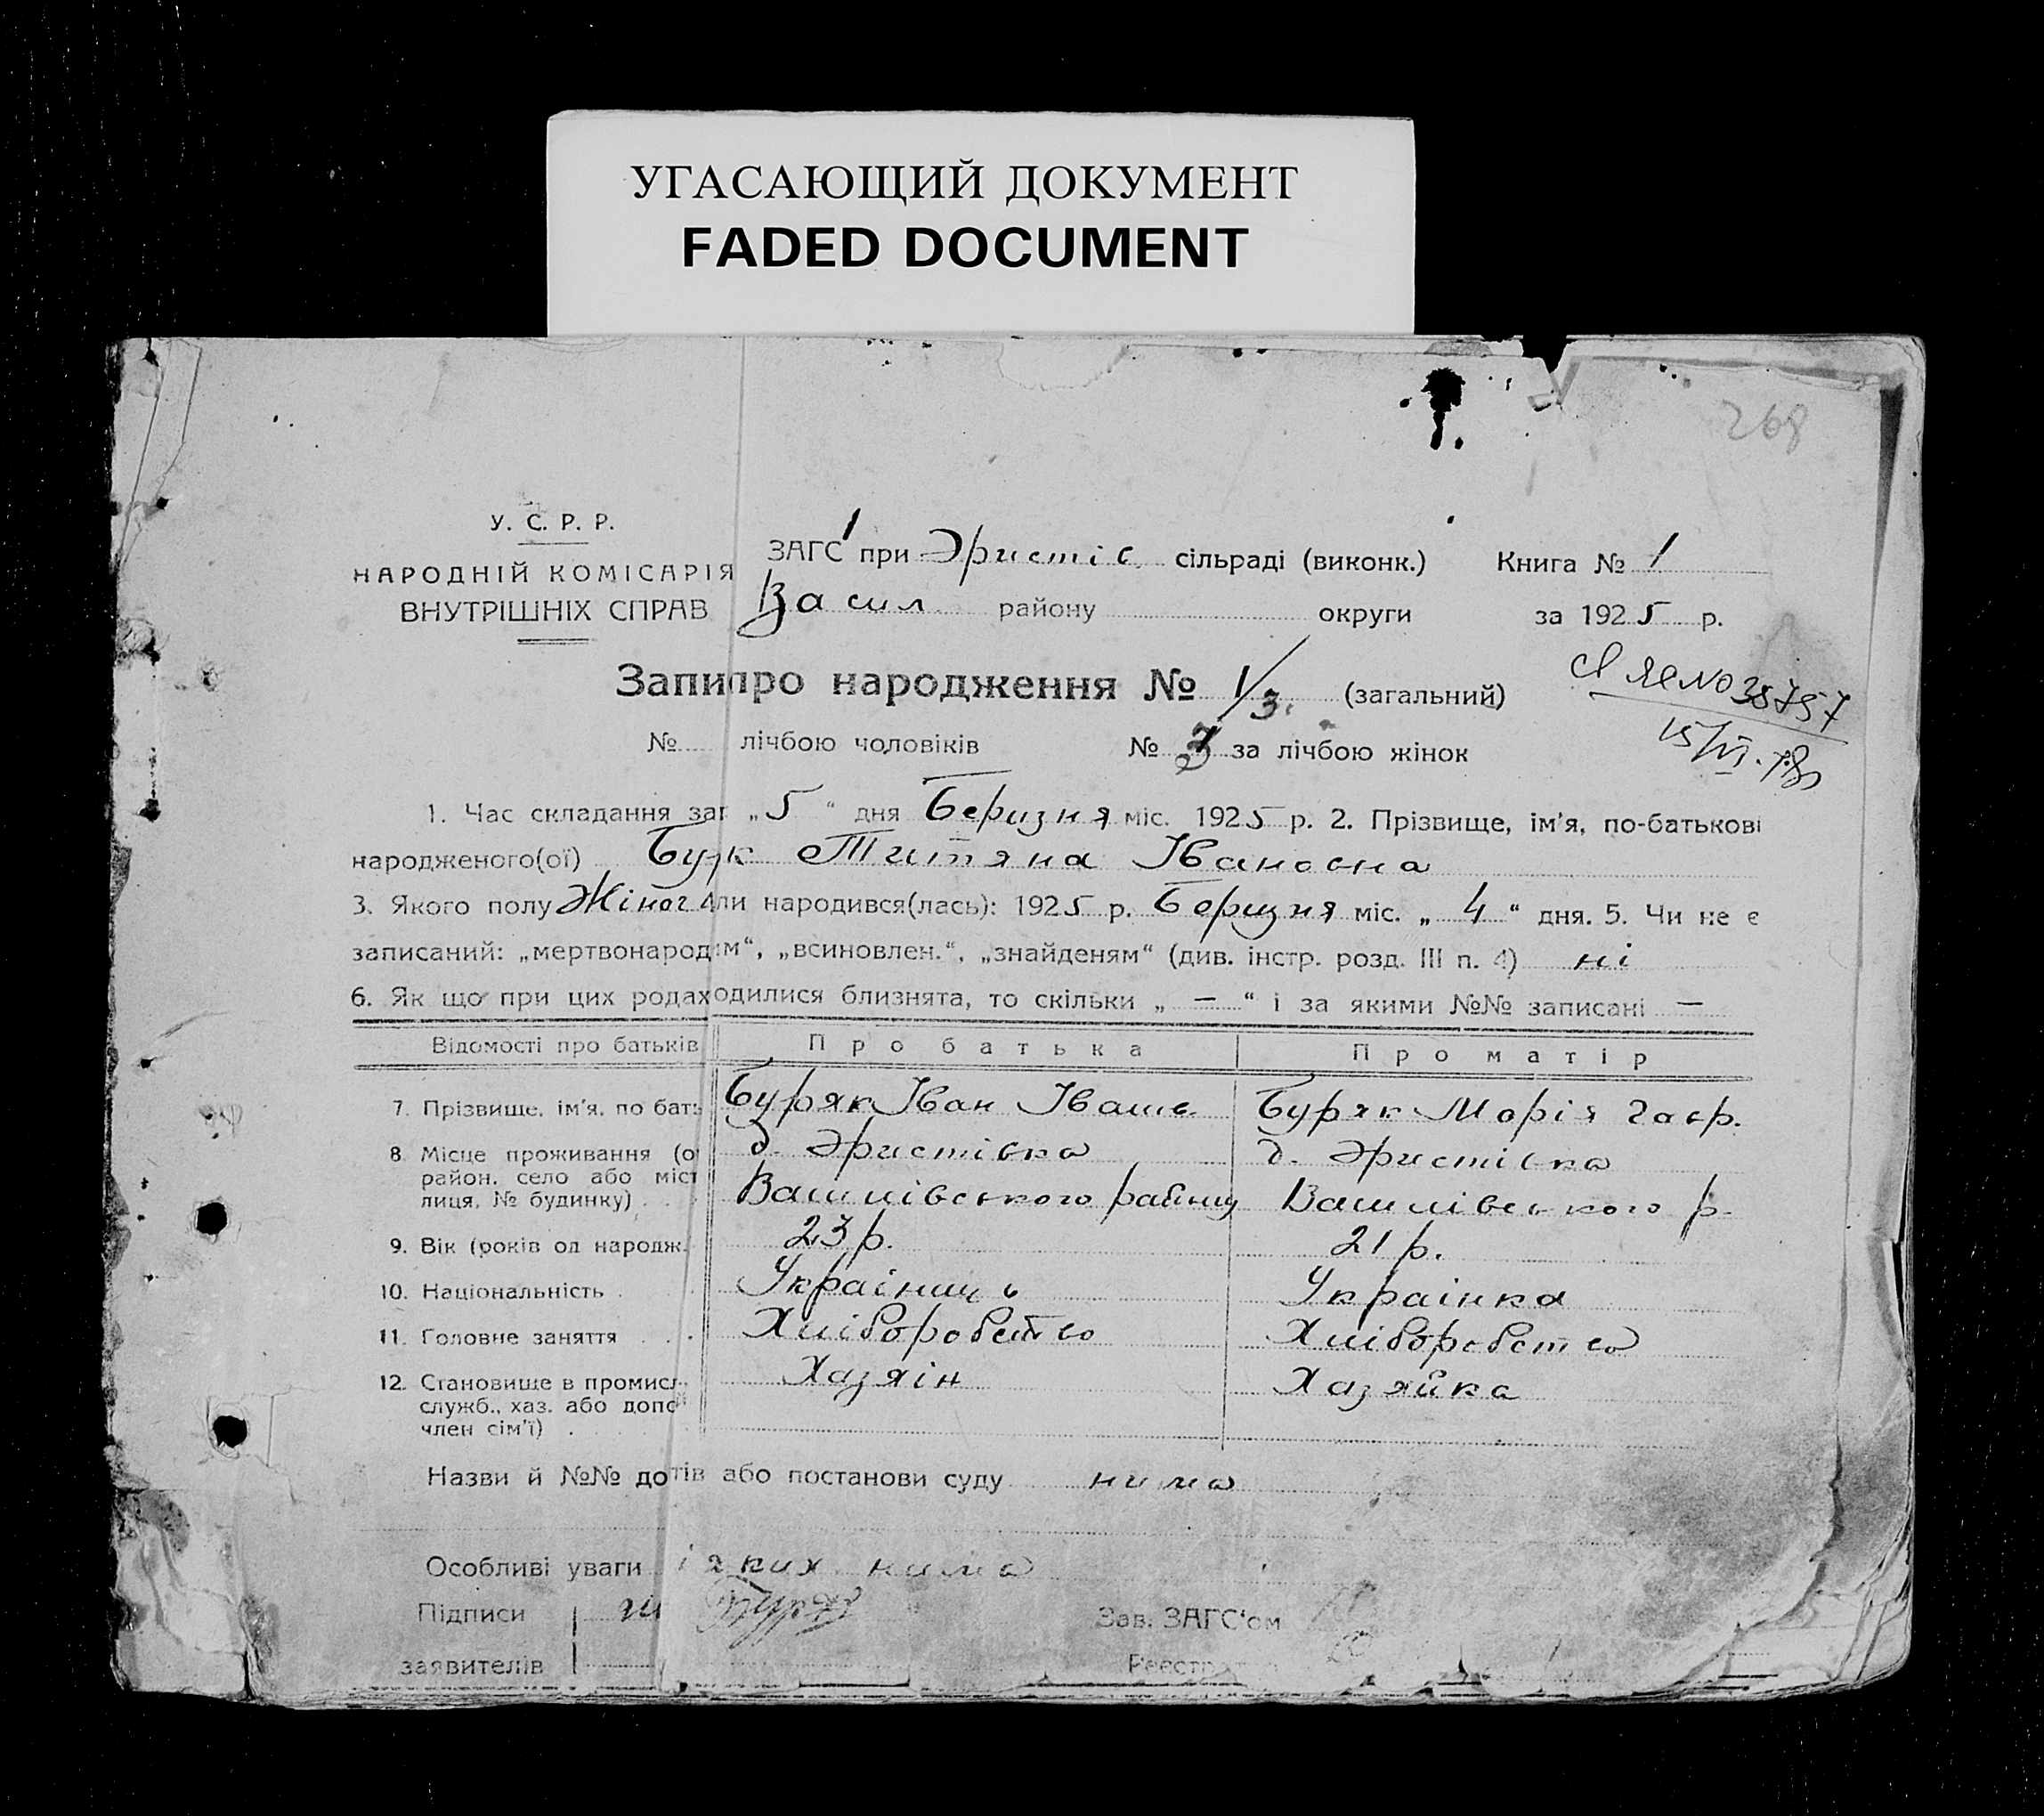 УГАСАЮЩИЙ ДОКУМЕНТ
FADED DOCUMENT
268
У. С. Р. Р.
НАРОДНІЙ КОМІСАРІЯ
ВНУТРІШНІХ СПРАВ
1
ЗАГС при Эристів. сільраді (виконк.) Книга № 1
Васил району округи за 1925 р.
Запи про народження № 1/3. (загальний)
№ лічбою чоловіків № 3 за лічбою жінок
38757
15/VI-78
1. Час складання зап „5“ дня Беризня міс. 1925 р. 2. Прізвище, ім'я, по-батькові
народженого(ої) Бу к Титяна Івановна
3. Якого полу Жіноч ли народився(лась): 1925 р. Беризня міс. „4“ дня. 5. Чи не є
записаний: „мертвонародім“, „всиновлен.“, „знайденям“ (див. інстр. розд. III п. 4) ні
6. Як що при цих родах одилися близнята, то скільки „ — “ і за якими №№ записані —
Відомості про батьків Про батька Про матір
7. Прізвище, ім'я, по бать Буряк Іван Іванв. Буряк Морія Гавр.
8 Місце проживання (о д. Эристівка д. Эристівка
район, село або міст
лиця, № будинку) Васил івського райину Василівського р.
9. Вік (років од народж. 23 р. 21 р.
10. Національність Українець Українка
11. Головне заняття Хліборобство Хліборобство
12. Становище в промисл. Хазяін Хазяйка
служб., хаз. або допо
член сім'ї)
Назви й №№ до тів або постанови суду нима
Особливі уваги іяких нима
Підписи Буряк Зав. ЗАГС'ом
заявителів Реєстр